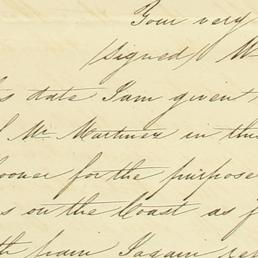 Your very
(Signed) W
s date I am given
Mr Martinez in this
ooner for the purpose
s on the Coast as f
th from I again re